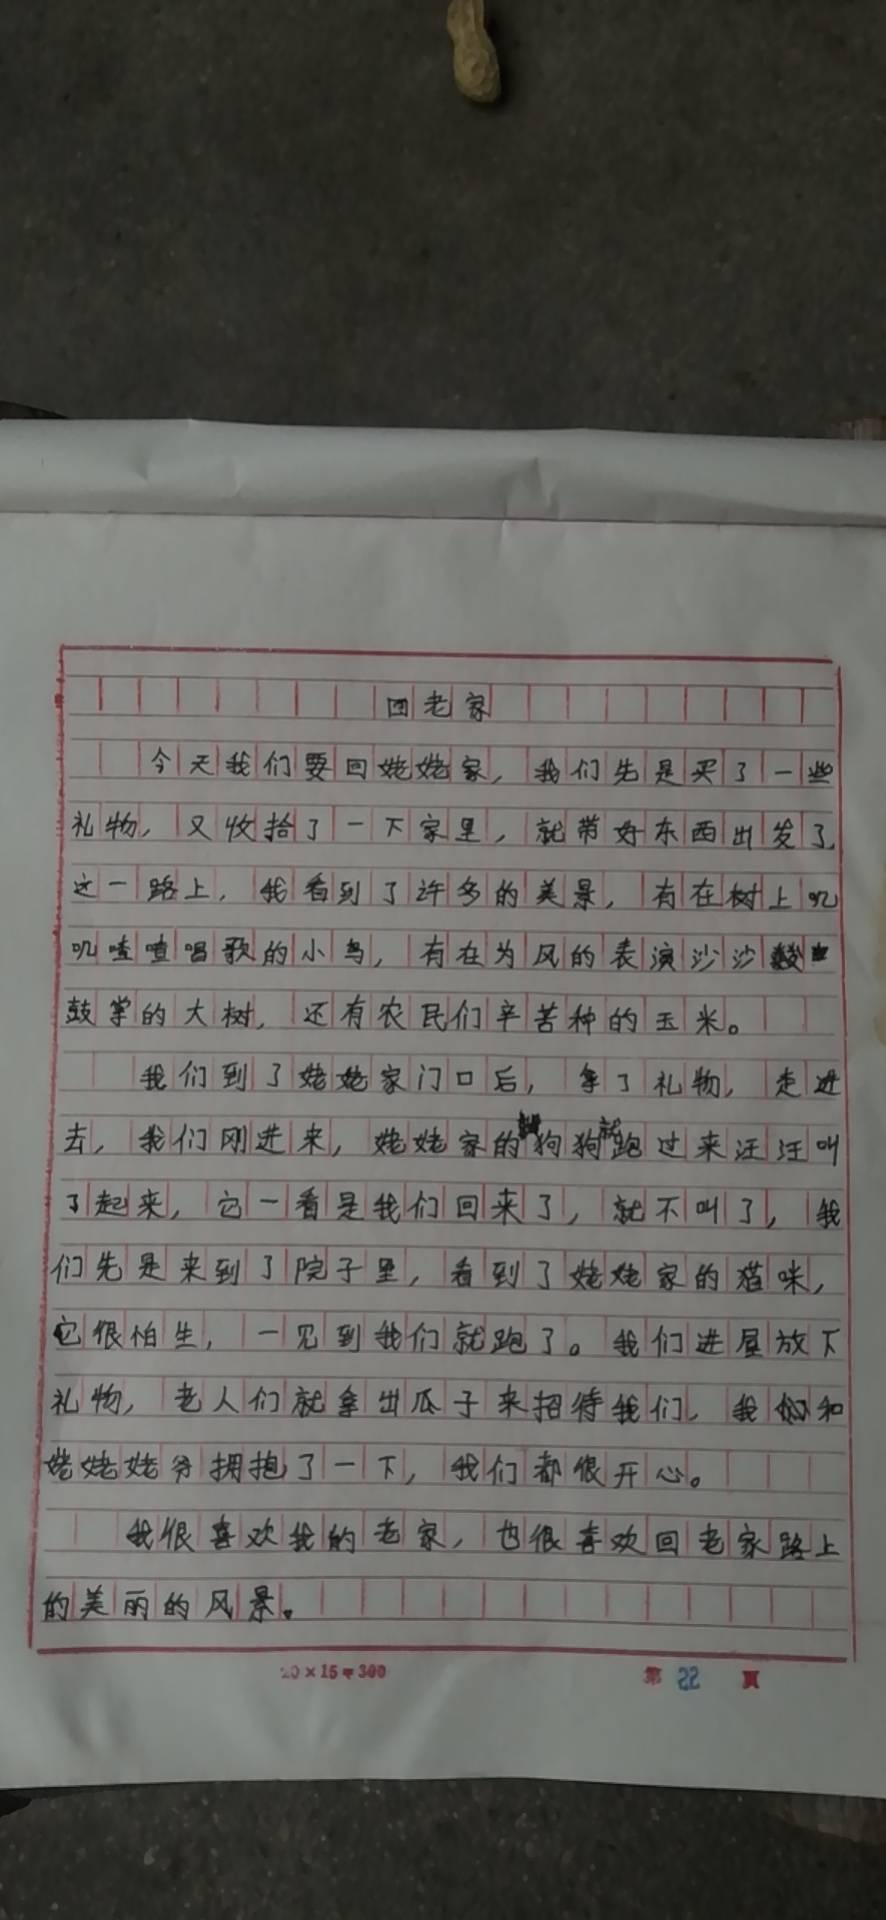 回老家
今天我们要回姥姥家，我们先是买了一些
礼物，又收拾了一下家里，就带好东西出发了，
这一路上，我看到了许多的美景，有在树上叽
叽喳喳唱歌的小鸟，有在为风的表演沙沙
鼓掌的大树，还有农民们辛苦种的玉米。
我们到了姥姥家门口后，拿了礼物，走进
去，我们刚进来，姥姥家的狗狗就跑过来汪汪叫
了起来，它一看是我们回来了，就不叫了，我
们先是来到了院子里，看到了姥姥家的猫咪，
它很怕生，一见到我们就跑了。我们进屋放下
礼物，老人们就拿出瓜子来招待我们，我和
姥姥姥爷拥抱了一下，我们都很开心。
我很喜欢我的老家，也很喜欢回老家路上
的美丽的风景。
20×15=300 第 22 页